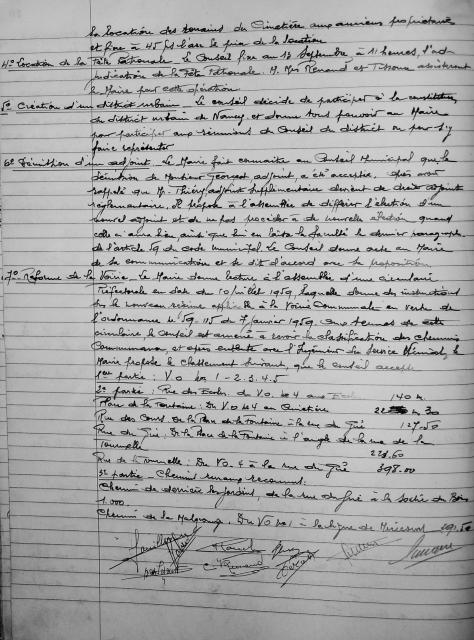 la location des terrains du Cimetière aux anciens propriétaires
et fixe à 45 fs l'are le prix de la location
4° Location de la Fête Patronale. Le Conseil fixe au 13 Septembre à 11 heures, l'ad-
judication de la Fête Patronale. M. Mrs Renard et assisteront
le Maire pour cette opération
5° Création d'un district urbain. Le conseil décide de participer à la constitution
du district urbain de Nancy et donne tous pouvoir au Maire
pour participer aux réunions du Conseil du district ou pour s'y
faire représenter
6° Démission d'un adjoint. Le Maire fait connaître au Conseil Municipal que la
démission de Monsieur Georges adjoint, a été acceptée. Après avoir
rappelé que M. Thiéry adjoint supplémentaire devient de droit adjoint
réglementaire. Il propose à l'assemblée de différer l'élection d'un
nouvel adjoint et de ne pas procéder à de nouvelle élection quand
celle ci aura lieu, ainsi que lui en laisse la faculté le dernier paragraphe
de l'article 59 du code municipal. Le Conseil donne acte au Maire
de sa communication et se dit d'accord avec sa proposition
7° Réforme de la Voirie. Le Maire donne lecture à l'assemblée d'une circulaire
Préfectorale en date du 10 juillet 1959, laquelle donne des instructions
sur le nouveau régime applicable à la Voirie Communale en vertu de
l'ordonnance n° 59.115 du 7 janvier 1959. Aux termes de cette
circulaire le Conseil est amené à revoir la classification des chemins
Communaux, et après entente avec l'Ingénieur du Service Vicinal, le
Maire propose le Classement suivant, que le conseil accepte
1ère partie : V.O. nos 1-2-3-4-5
2e partie : Rue des Ecoles. du V.O. no 4 aux Ecoles 140 m.
Place de la Fontaine : Du VO no 4 au Cimetière 30
Rue des Cours. De la Place de la Fontaine à la rue du Gué 127.50
Rue du Gué. De la Place de la Fontaine à l'angle de la rue de la
Tournelle 221.60
Rue de la Tournelle : Du VO. 4 à la rue du Gué 398.00
3e partie - Chemins ruraux reconnus
Chemin de derrière les Jardins, de la rue du Gué à la sortie du Bois
1.000
Chemin de la Malgrange. Du VO no 1 à la ligne de Mirecourt